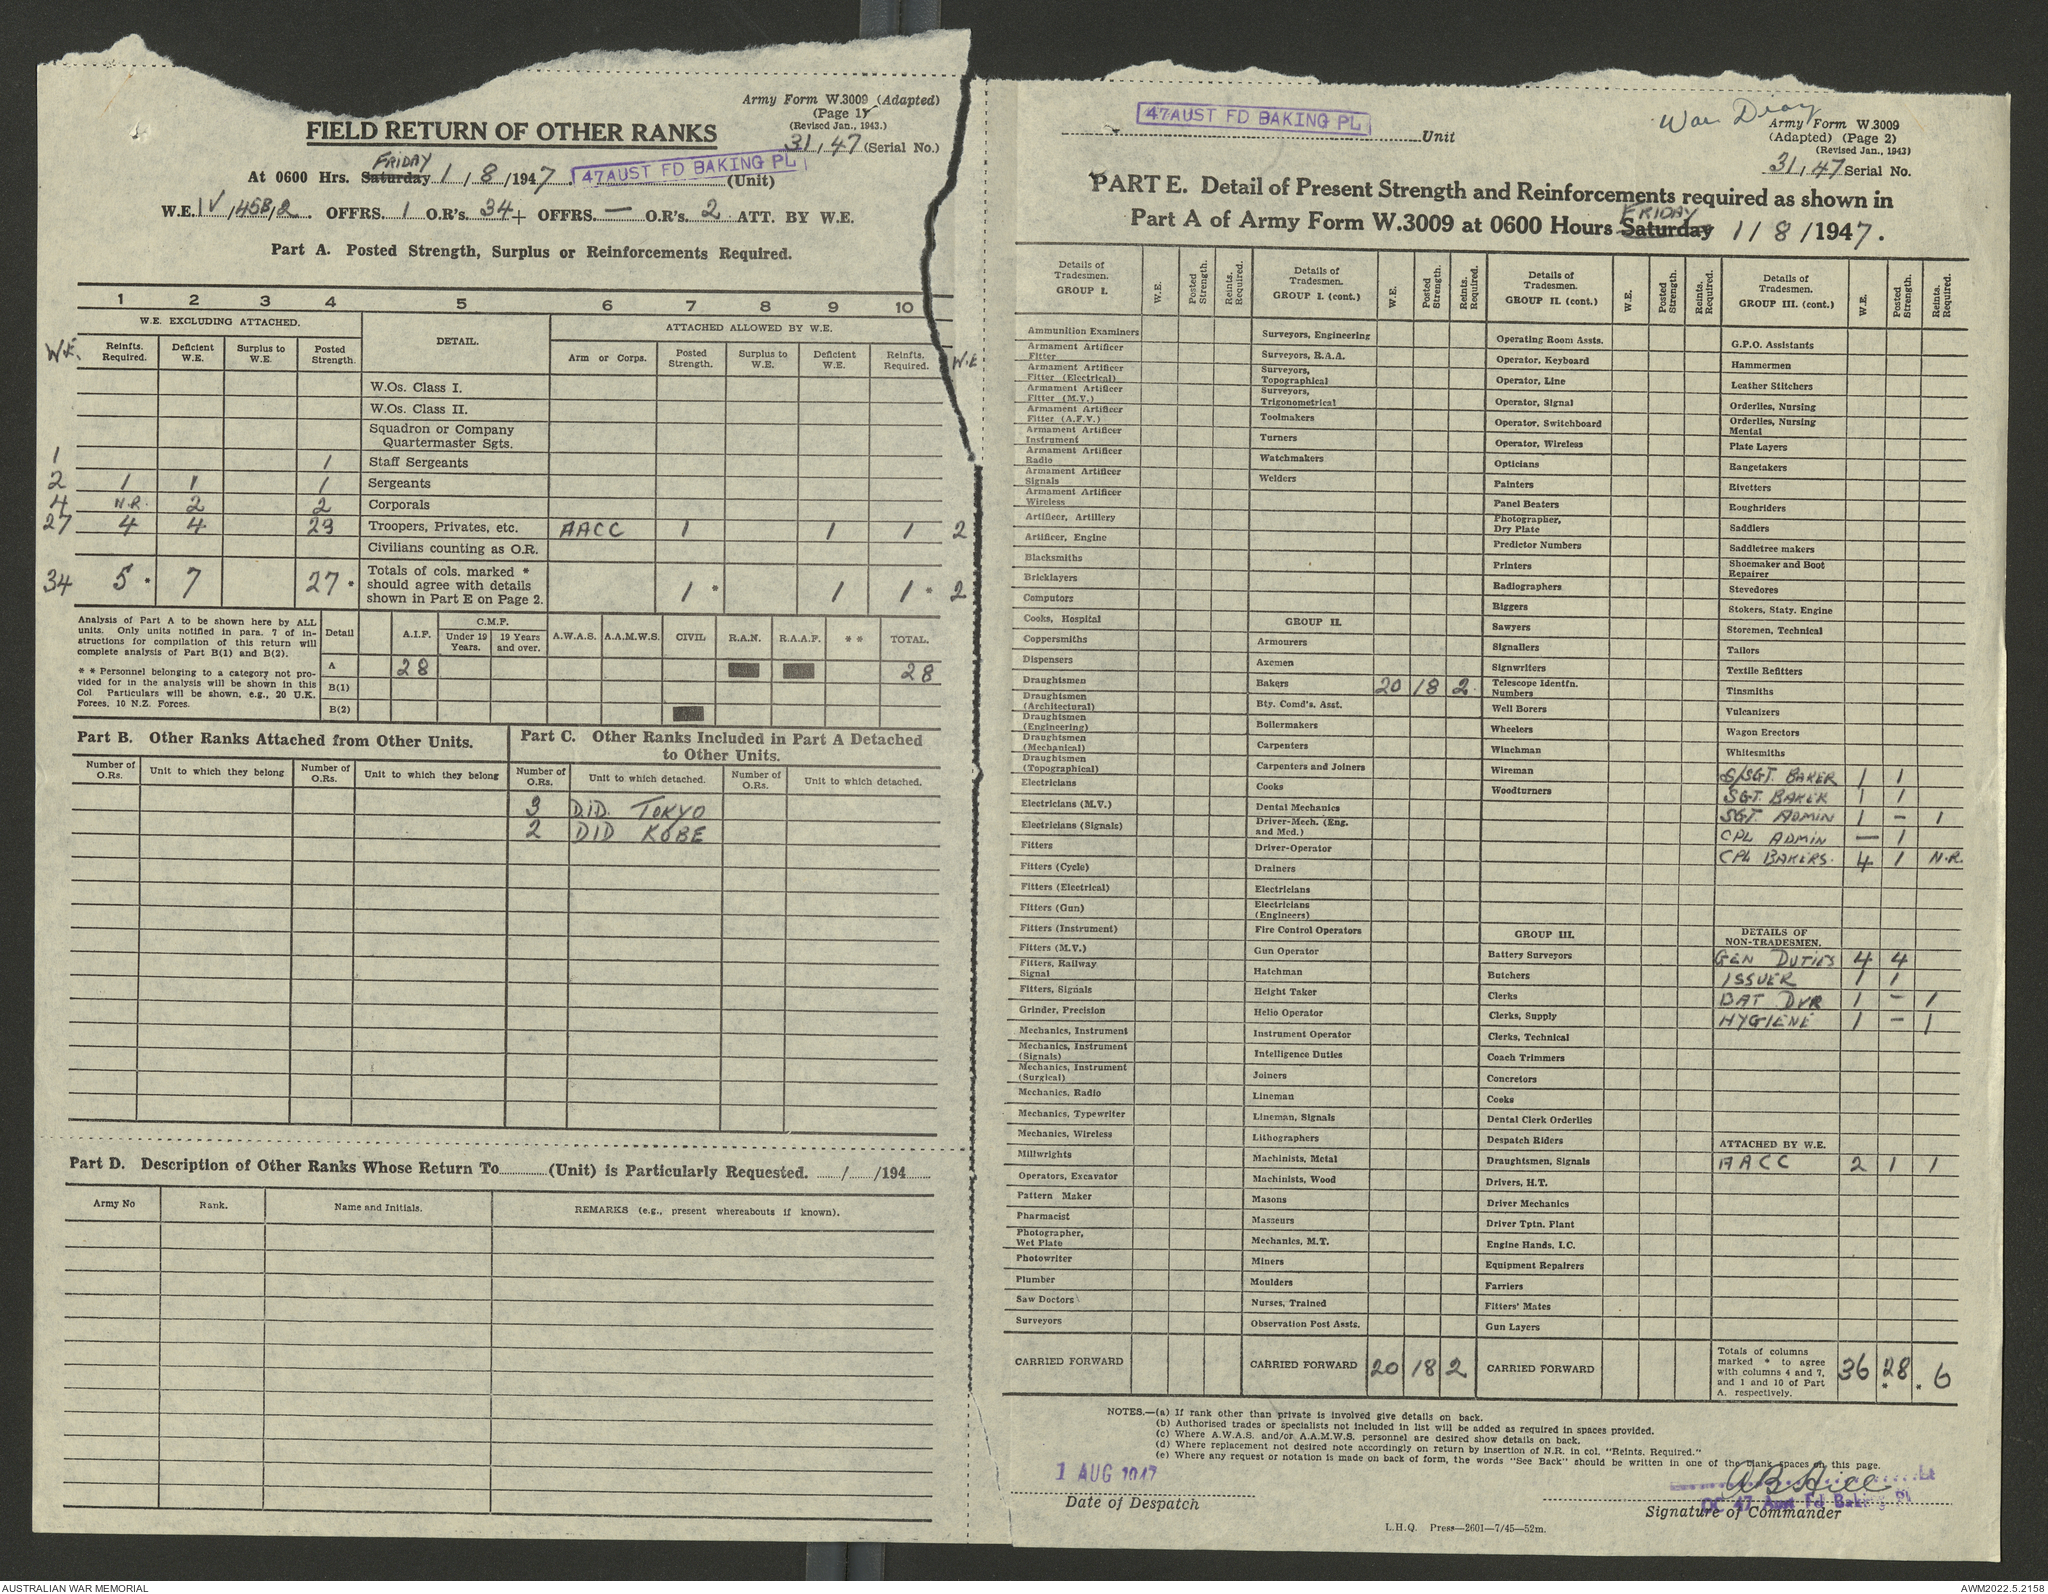 Army Form W.3009 (Adapted)
(Page 1)
(Revised Jan., 1943.)
FIELD RETURN OF OTHER RANKS
31/47 (Serial No.)
At 0600 Hrs. Saturday FRIDAY 1/8/1947. 47 AUST FD BAKING PL (Unit)
W.E. IV/45B/2. OFFRS. 1 O.R's. 34 + OFFRS. — O.R's. 2 ATT. BY W.E.
Part A. Posted Strength, Surplus or Reinforcements Required.
1 2 3 4 5 6 7 8 9 10
W.E. EXCLUDING ATTACHED. DETAIL. ATTACHED ALLOWED BY W.E.
W.E. Reinfts. Required. Deficient W.E. Surplus to W.E. Posted Strength. Arm or Corps. Posted Strength. Surplus to W.E. Deficient W.E. Reinfts. Required. W.E
W.Os. Class I.
W.Os. Class II.
Squadron or Company Quartermaster Sgts.
1 1 Staff Sergeants
2 1 1 1 Sergeants
4 N.R. 2 2 Corporals
27 4 4 23 Troopers, Privates, etc. AACC 1 1 1 2
Civilians counting as O.R.
34 5 * 7 27 * Totals of cols. marked * should agree with details shown in Part E on Page 2. 1 * 1 1 * 2
Analysis of Part A to be shown here by ALL units. Only units notified in para. 7 of instructions for compilation of this return will complete analysis of Part B(1) and B(2).
* * Personnel belonging to a category not provided for in the analysis will be shown in this Col. Particulars will be shown, e.g., 20 U.K. Forces, 10 N.Z. Forces.
Detail A.I.F. C.M.F. Under 19 Years. 19 Years and over. A.W.A.S. A.A.M.W.S. CIVIL R.A.N. R.A.A.F. * * TOTAL.
A 28 28
B(1)
B(2)
Part B. Other Ranks Attached from Other Units.
Number of O.Rs. Unit to which they belong Number of O.Rs. Unit to which they belong
Part C. Other Ranks Included in Part A Detached to Other Units.
Number of O.Rs. Unit to which detached. Number of O.Rs. Unit to which detached.
3 D.I.D. TOKYO
2 DID KOBE
Part D. Description of Other Ranks Whose Return To (Unit) is Particularly Requested. / /194
Army No Rank. Name and Initials. REMARKS (e.g., present whereabouts if known).
47 AUST FD BAKING PL Unit
War Diary
Army Form W.3009
(Adapted) (Page 2)
(Revised Jan., 1943)
31/47 Serial No.
PART E. Detail of Present Strength and Reinforcements required as shown in
Part A of Army Form W.3009 at 0600 Hours Saturday FRIDAY 1/8/1947.
Details of Tradesmen. GROUP I. W.E. Posted Strength. Reints. Required.
Ammunition Examiners
Armament Artificer Fitter
Armament Artificer Fitter (Electrical)
Armament Artificer Fitter (M.V.)
Armament Artificer Fitter (A.F.V.)
Armament Artificer Instrument
Armament Artificer Radio
Armament Artificer Signals
Armament Artificer Wireless
Artificer, Artillery
Artificer, Engine
Blacksmiths
Bricklayers
Computors
Cooks, Hospital
Coppersmiths
Dispensers
Draughtsmen
Draughtsmen (Architectural)
Draughtsmen (Engineering)
Draughtsmen (Mechanical)
Draughtsmen (Topographical)
Electricians
Electricians (M.V.)
Electricians (Signals)
Fitters
Fitters (Cycle)
Fitters (Electrical)
Fitters (Gun)
Fitters (Instrument)
Fitters (M.V.)
Fitters, Railway Signal
Fitters, Signals
Grinder, Precision
Mechanics, Instrument
Mechanics, Instrument (Signals)
Mechanics, Instrument (Surgical)
Mechanics, Radio
Mechanics, Typewriter
Mechanics, Wireless
Millwrights
Operators, Excavator
Pattern Maker
Pharmacist
Photographer, Wet Plate
Photowriter
Plumber
Saw Doctors
Surveyors
CARRIED FORWARD
Details of Tradesmen. GROUP I. (cont.) W.E. Posted Strength. Reints. Required.
Surveyors, Engineering
Surveyors, R.A.A.
Surveyors, Topographical
Surveyors, Trigonometrical
Toolmakers
Turners
Watchmakers
Welders
GROUP II.
Armourers
Axemen
Bakers 20 18 2
Bty. Comd's. Asst.
Boilermakers
Carpenters
Carpenters and Joiners
Cooks
Dental Mechanics
Driver-Mech. (Eng. and Med.)
Driver-Operator
Drainers
Electricians
Electricians (Engineers)
Fire Control Operators
Gun Operator
Hatchman
Height Taker
Helio Operator
Instrument Operator
Intelligence Duties
Joiners
Lineman
Lineman, Signals
Lithographers
Machinists, Metal
Machinists, Wood
Masons
Masseurs
Mechanics, M.T.
Miners
Moulders
Nurses, Trained
Observation Post Assts.
CARRIED FORWARD 20 18 2
Details of Tradesmen. GROUP II. (cont.) W.E. Posted Strength. Reints. Required.
Operating Room Assts.
Operator, Keyboard
Operator, Line
Operator, Signal
Operator, Switchboard
Operator, Wireless
Opticians
Painters
Panel Beaters
Photographer, Dry Plate
Predictor Numbers
Printers
Radiographers
Riggers
Sawyers
Signallers
Signwriters
Telescope Identfn. Numbers
Well Borers
Wheelers
Winchman
Wireman
Woodturners
GROUP III.
Battery Surveyors
Butchers
Clerks
Clerks, Supply
Clerks, Technical
Coach Trimmers
Concretors
Cooks
Dental Clerk Orderlies
Despatch Riders
Draughtsmen, Signals
Drivers, H.T.
Driver Mechanics
Driver Tptn. Plant
Engine Hands, I.C.
Equipment Repairers
Farriers
Fitters' Mates
Gun Layers
CARRIED FORWARD
Details of Tradesmen. GROUP III. (cont.) W.E. Posted Strength. Reints. Required.
G.P.O. Assistants
Hammermen
Leather Stitchers
Orderlies, Nursing
Orderlies, Nursing Mental
Plate Layers
Rangetakers
Rivetters
Roughriders
Saddlers
Saddletree makers
Shoemaker and Boot Repairer
Stevedores
Stokers, Staty. Engine
Storemen, Technical
Tailors
Textile Refitters
Tinsmiths
Vulcanizers
Wagon Erectors
Whitesmiths
S/SGT. BAKER 1 1
SGT. BAKER 1 1
SGT ADMIN 1 - 1
CPL ADMIN — 1
CPL BAKERS. 4 1 N.R.
DETAILS OF NON-TRADESMEN.
GEN DUTIES 4 4
ISSUER 1 1
BAT DVR 1 - 1
HYGIENE 1 - 1
ATTACHED BY W.E.
AACC 2 1 1
Totals of columns marked * to agree with columns 4 and 7, and 1 and 10 of Part A. respectively. 36 28 * * 6
NOTES.—(a) If rank other than private is involved give details on back.
(b) Authorised trades or specialists not included in list will be added as required in spaces provided.
(c) Where A.W.A.S. and/or A.A.M.W.S. personnel are desired show details on back.
(d) Where replacement not desired note accordingly on return by insertion of N.R. in col. "Reints. Required."
(e) Where any request or notation is made on back of form, the words "See Back" should be written in one of the blank spaces on this page.
1 AUG 1947
Date of Despatch
AB Hill Lt
OC 47 Aust Fd Baking Pl
Signature of Commander
L.H.Q. Press—2601—7/45—52m.
AUSTRALIAN WAR MEMORIAL
AWM2022.5.2158